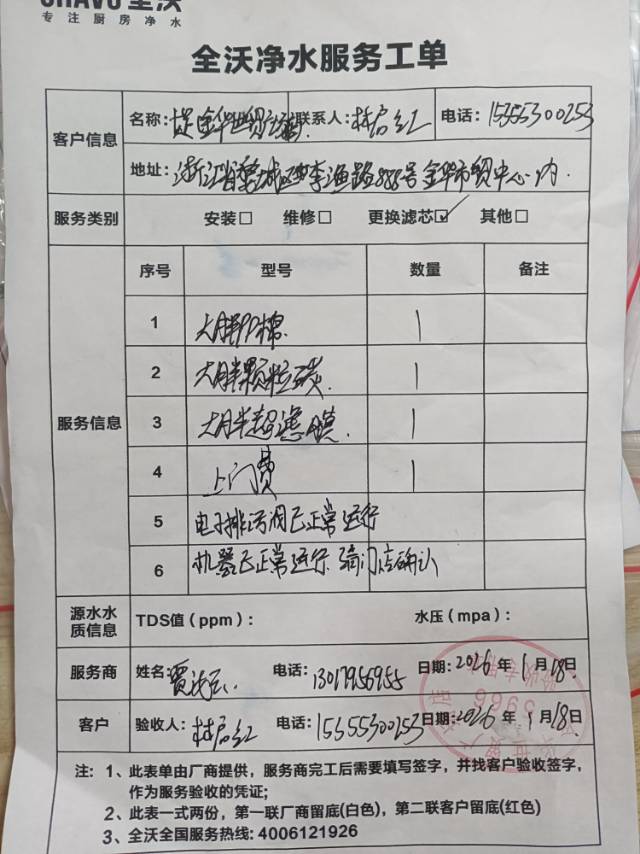 专注厨房净水
全沃净水服务工单
客户信息
名称: 金华世贸 联系人: 林启红 电话: 15355300253
地址: 浙江省婺城区李渔路888号金华世贸中心内.
服务类别 安装□ 维修□ 更换滤芯☑ 其他□
服务信息
序号 型号 数量 备注
1 大胖PP棉 1
2 大胖颗粒碳 1
3 大胖超滤膜. 1
4 上门费 1
5 电子排污阀已正常运行
6 机器已正常运行. 请门店确认
源水水质信息 TDS值(ppm): 水压(mpa):
服务商 姓名 电话: 13017956955 日期: 2026年1月18日
客户 验收人: 林启红 电话: 15355300253 日期: 2026年1月18日
注: 1、此表单由厂商提供,服务商完工后需要填写签字,并找客户验收签字,
作为服务验收的凭证;
2、此表一式两份,第一联厂商留底(白色),第二联客户留底(红色)
3、全沃全国服务热线: 4006121926